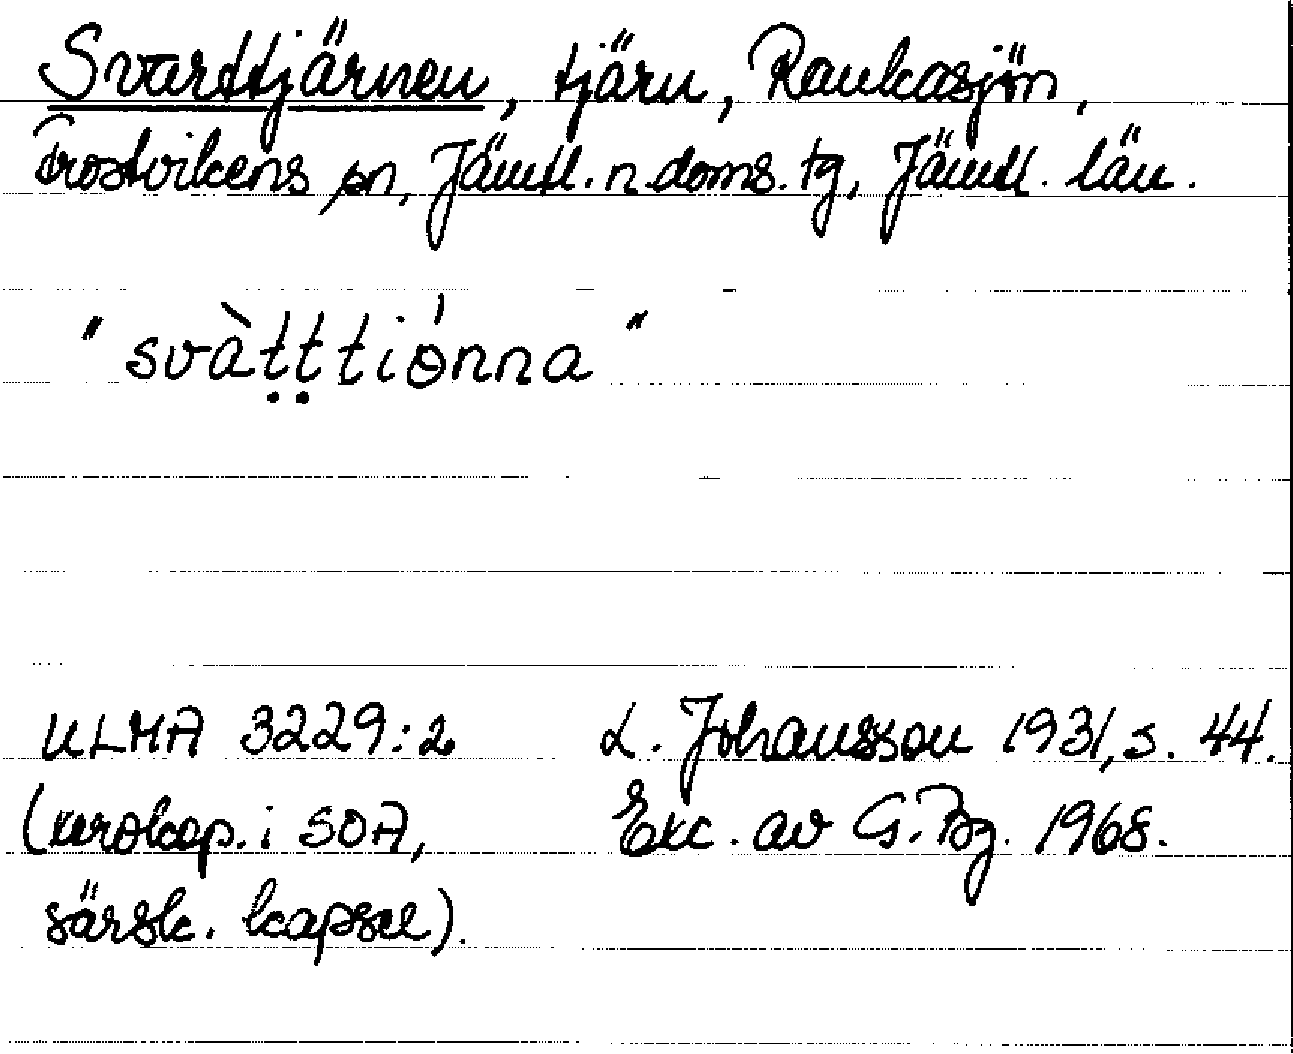 Svarttjärnen, tjärn, Raukasjön,
Frostvikens sn, Jämtl. n. doms. tg, Jämtl. län.
"svàṭṭtiǿnna"
ULMA 3229:2
L. Johansson 1931, s. 44.
(xerokop. i SOA,
Exc. av G. Bg. 1968.
särsk. kapsel).